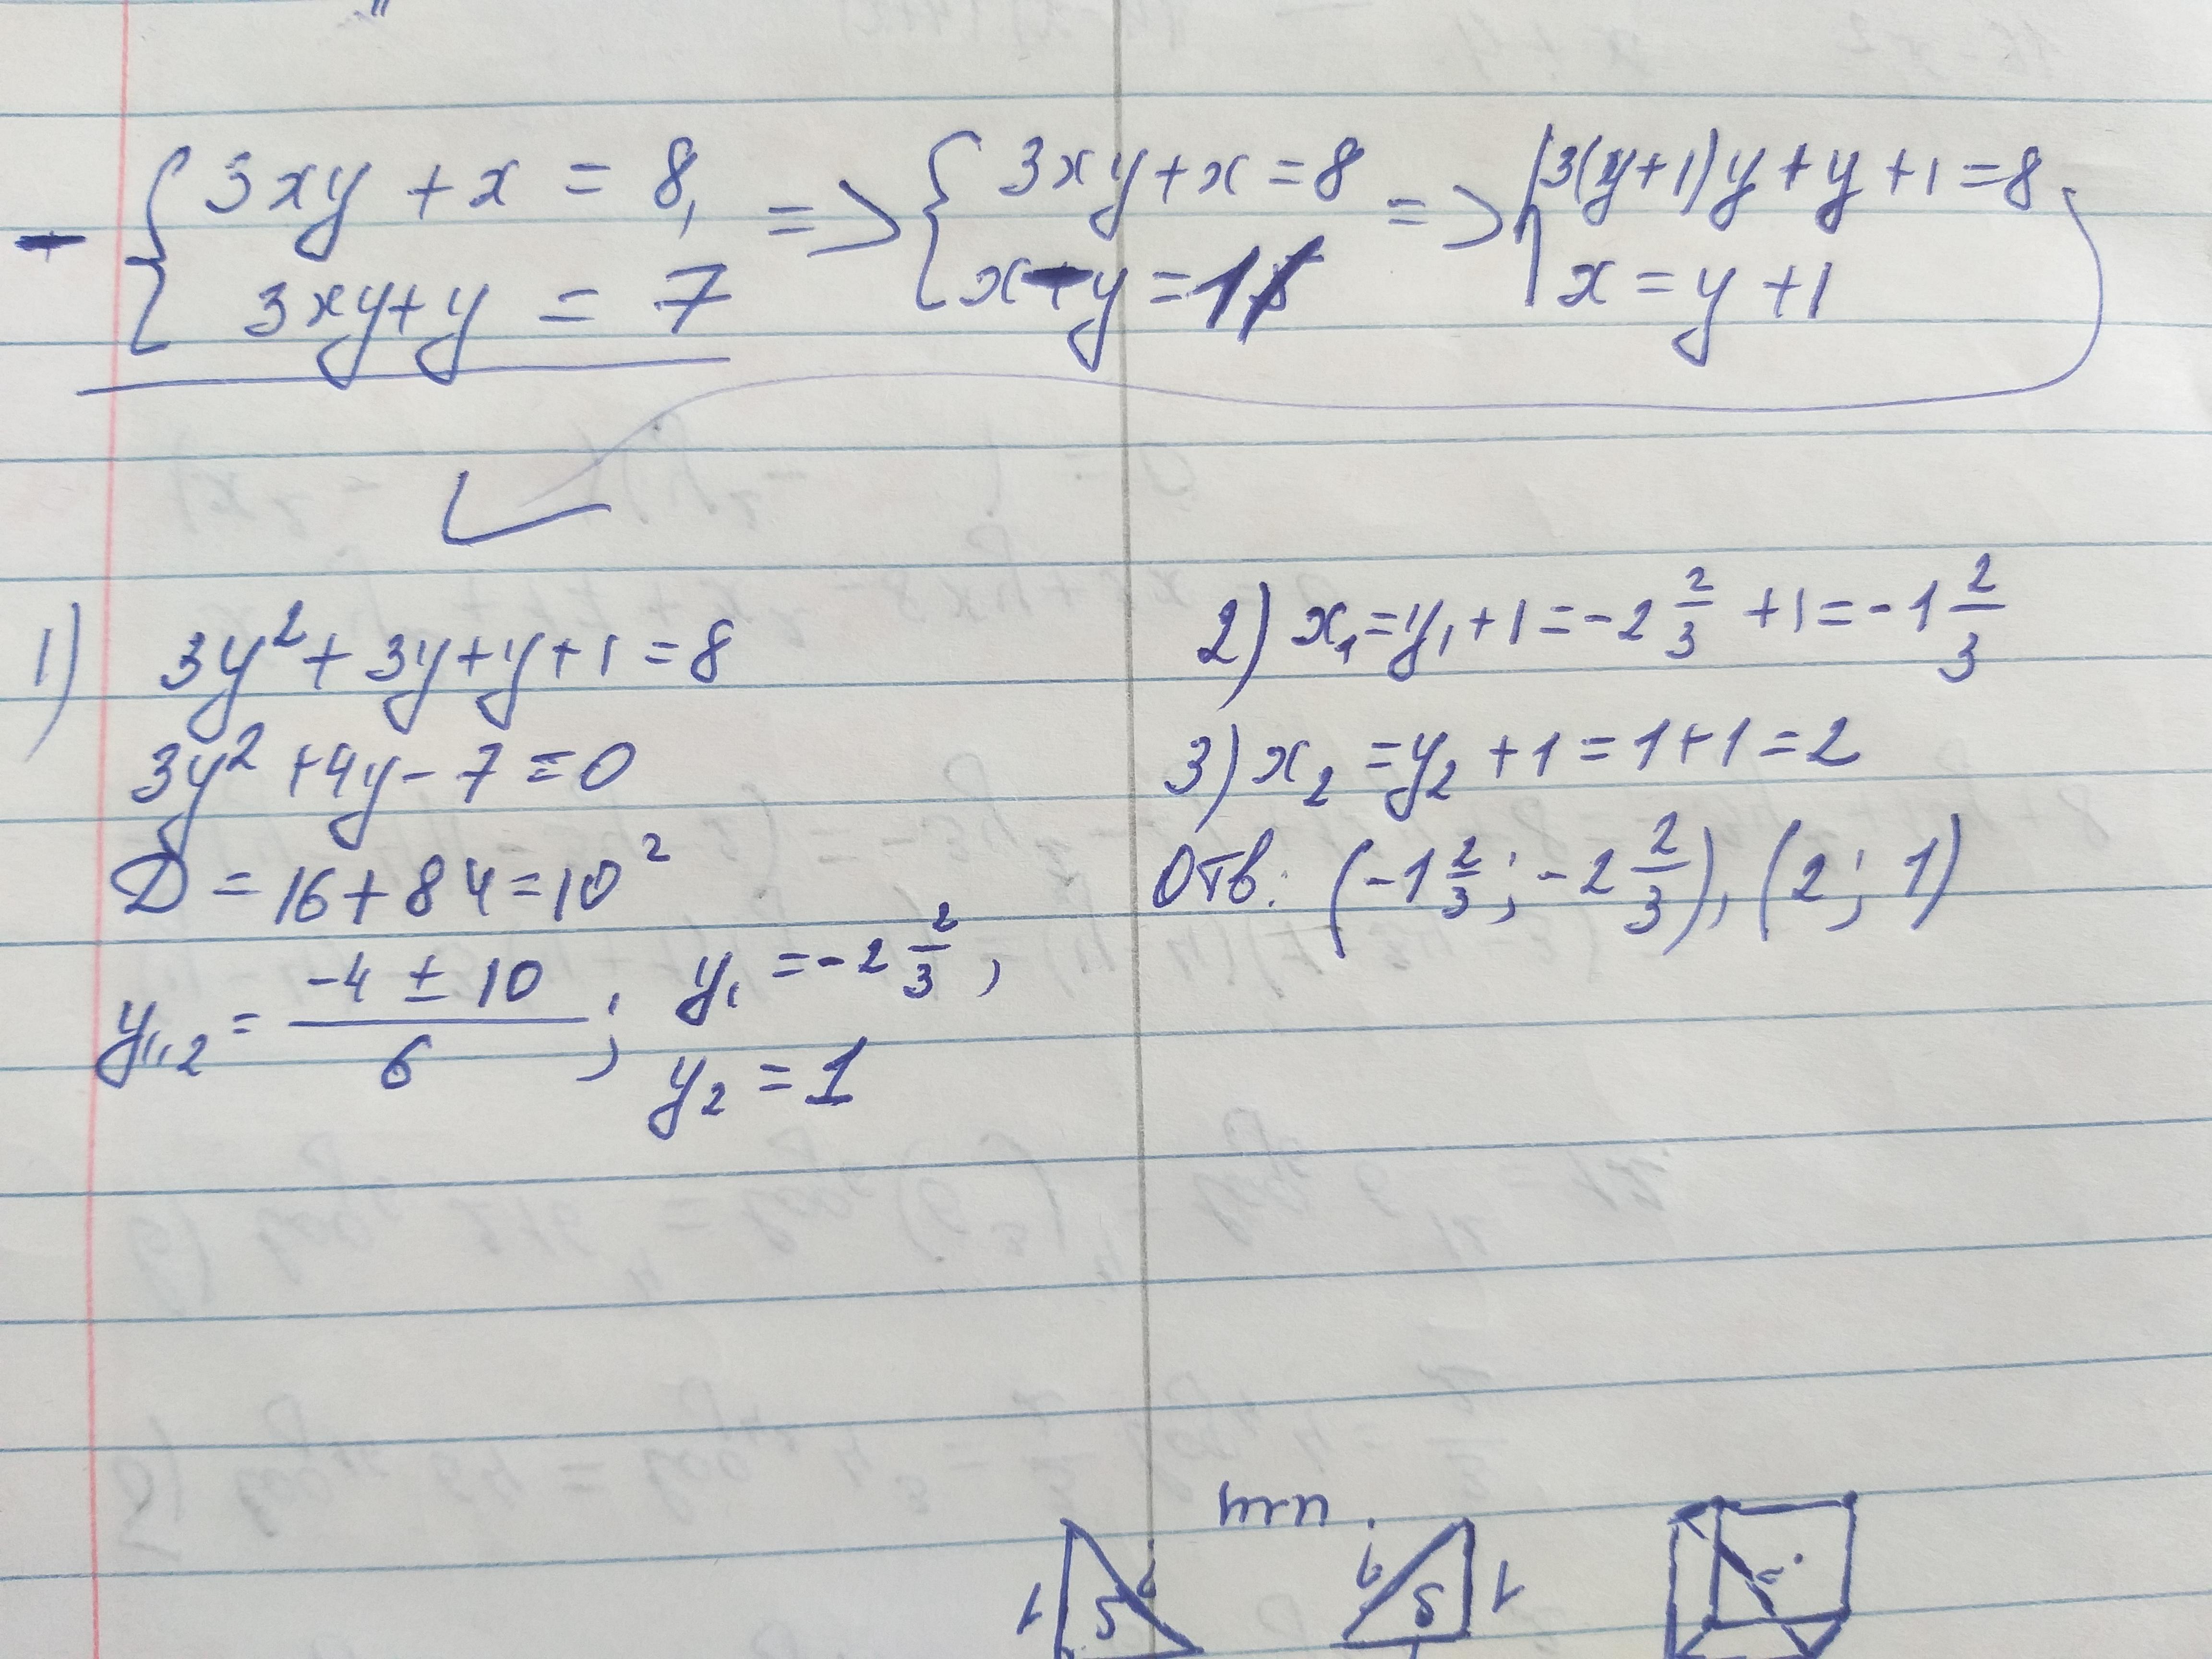 - { 3xy + x = 8, => { 3xy + x = 8 => { 3(y+1)y + y + 1 = 8
3xy + y = 7 x - y = 1 x = y + 1
1) 3y² + 3y + y + 1 = 8
3y² + 4y - 7 = 0
D = 16 + 84 = 10²
y₁,₂ = (-4 ± 10)/6 ; y₁ = -2 2/3,
y₂ = 1
2) x₁ = y₁ + 1 = -2 2/3 + 1 = -1 2/3
3) x₂ = y₂ + 1 = 1 + 1 = 2
Отв: (-1 2/3; -2 2/3), (2; 1)